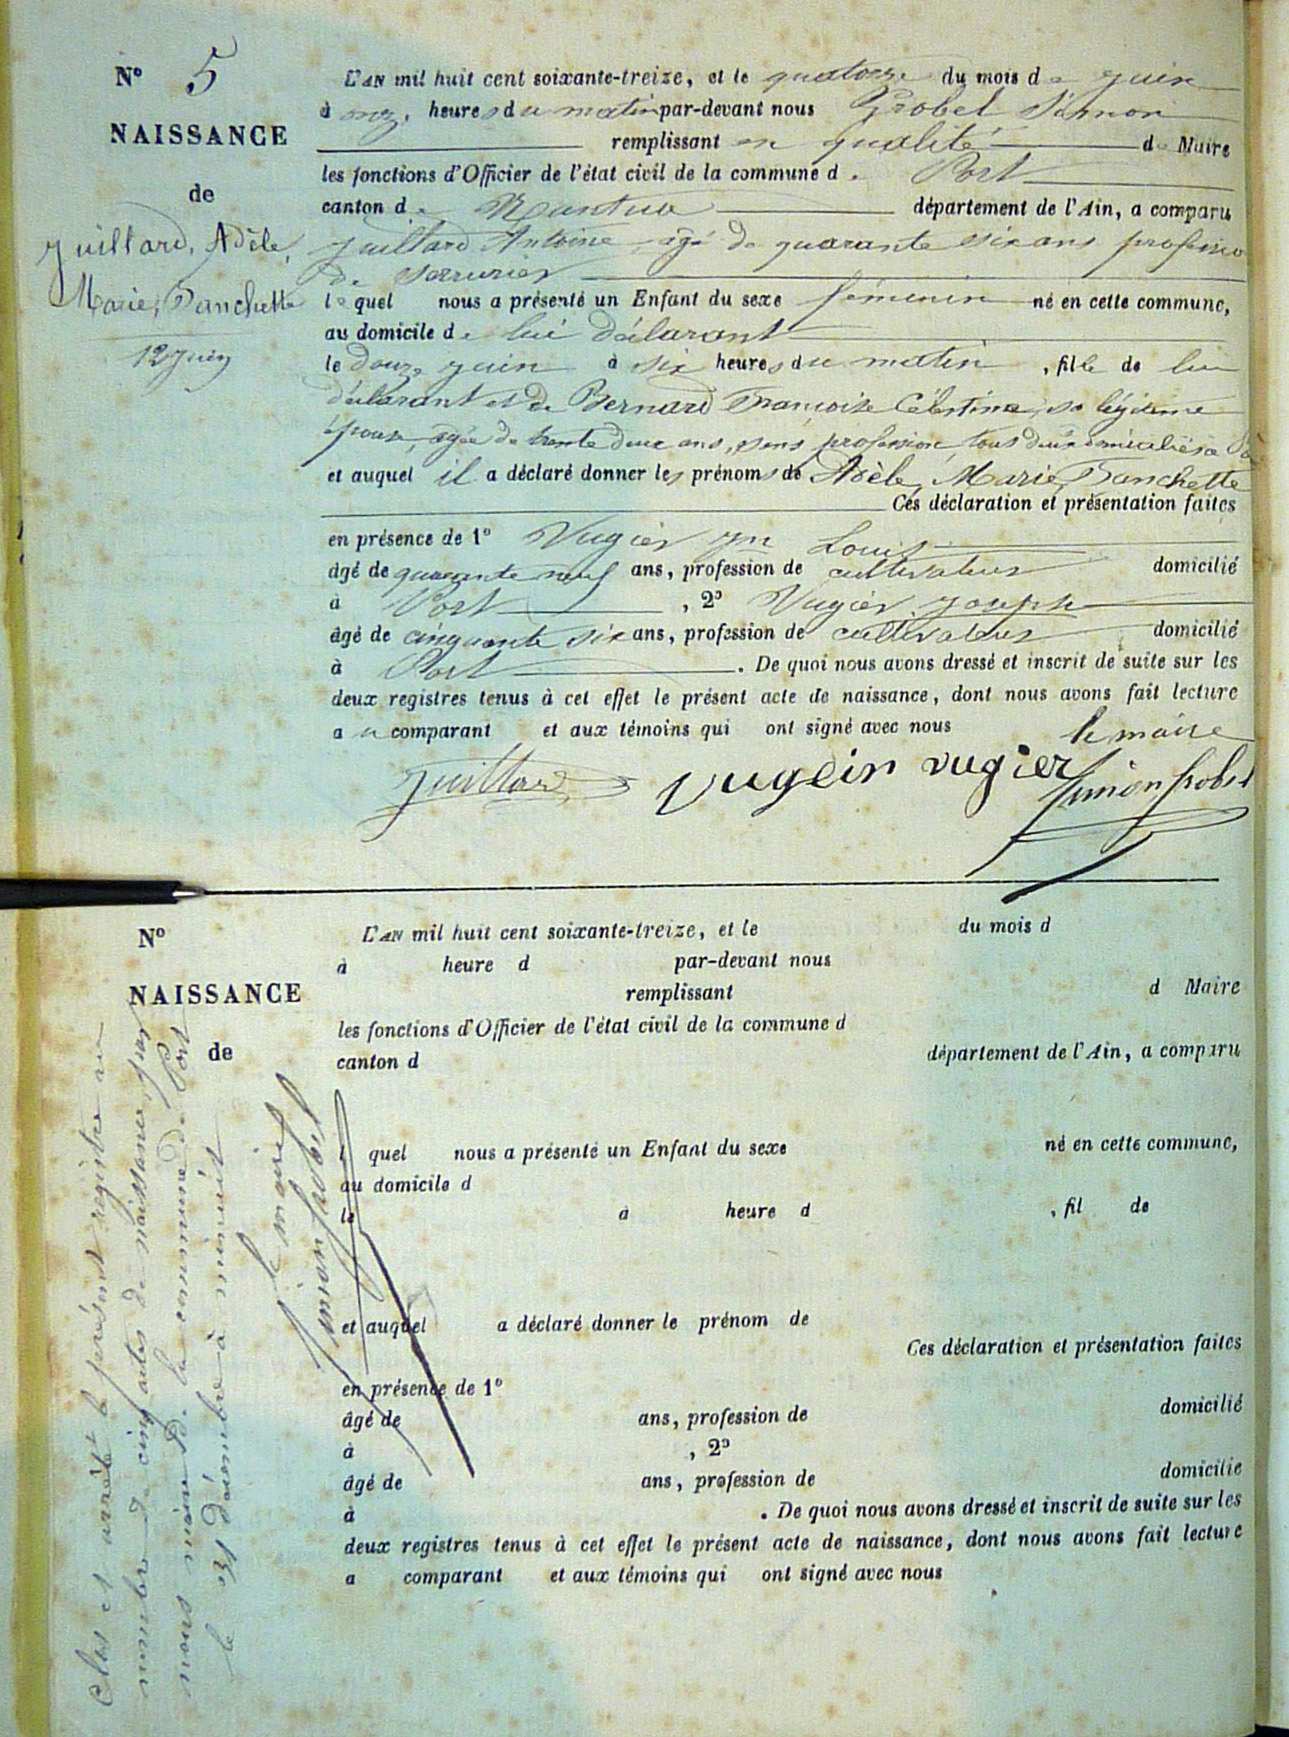 N° 5
NAISSANCE
de
Juillard, Adèle,
Marie, Fanchette
12 Juin
L'AN mil huit cent soixante-treize, et le quatorze du mois de juin
à onze heures du matin par-devant nous Grobel Simon
remplissant en qualité de Maire
les fonctions d'Officier de l'état civil de la commune de Port
canton de Nantua département de l'Ain, a comparu
Juillard Antoine âgé de quarante six ans profession
de serrurier
lequel nous a présenté un Enfant du sexe féminin né en cette commune,
au domicile de lui déclarant
le douze juin à six heures du matin, fille de lui
déclarant et de Bernard Françoise Célestine, sa légitime
épouse, agée de trente deux ans, sans profession, tous deux domiciliés à
et auquel il a déclaré donner les prénoms de Adèle, Marie, Fanchette
Ces déclaration et présentation faites
en présence de 1° Vugier Jn Louis
âgé de quarante neuf ans, profession de cultivateur domicilié
à Port, 2° Vugier Joseph
âgé de cinquante six ans, profession de cultivateur domicilié
à Port. De quoi nous avons dressé et inscrit de suite sur les
deux registres tenus à cet effet le présent acte de naissance, dont nous avons fait lecture
au comparant et aux témoins qui ont signé avec nous
le maire
Juillard vugier Simon Grobel
N°
NAISSANCE
de
L'AN mil huit cent soixante-treize, et le du mois d
à heure d par-devant nous
remplissant d Maire
les fonctions d'Officier de l'état civil de la commune d
canton d département de l'Ain, a comparu
l quel nous a présenté un Enfant du sexe né en cette commune,
au domicile d
le à heure d , fil de
et auquel a déclaré donner le prénom de
Ces déclaration et présentation faites
en présence de 1°
âgé de ans, profession de domicilié
à , 2°
âgé de ans, profession de domicilié
à . De quoi nous avons dressé et inscrit de suite sur les
deux registres tenus à cet effet le présent acte de naissance, dont nous avons fait lecture
a comparant et aux témoins qui ont signé avec nous
Clos et arrêté le présent registre au
nombre de cinq actes de naissance, par
nous maire de la commune de Port
le 31 décembre à minuit
le maire
Simon Grobel